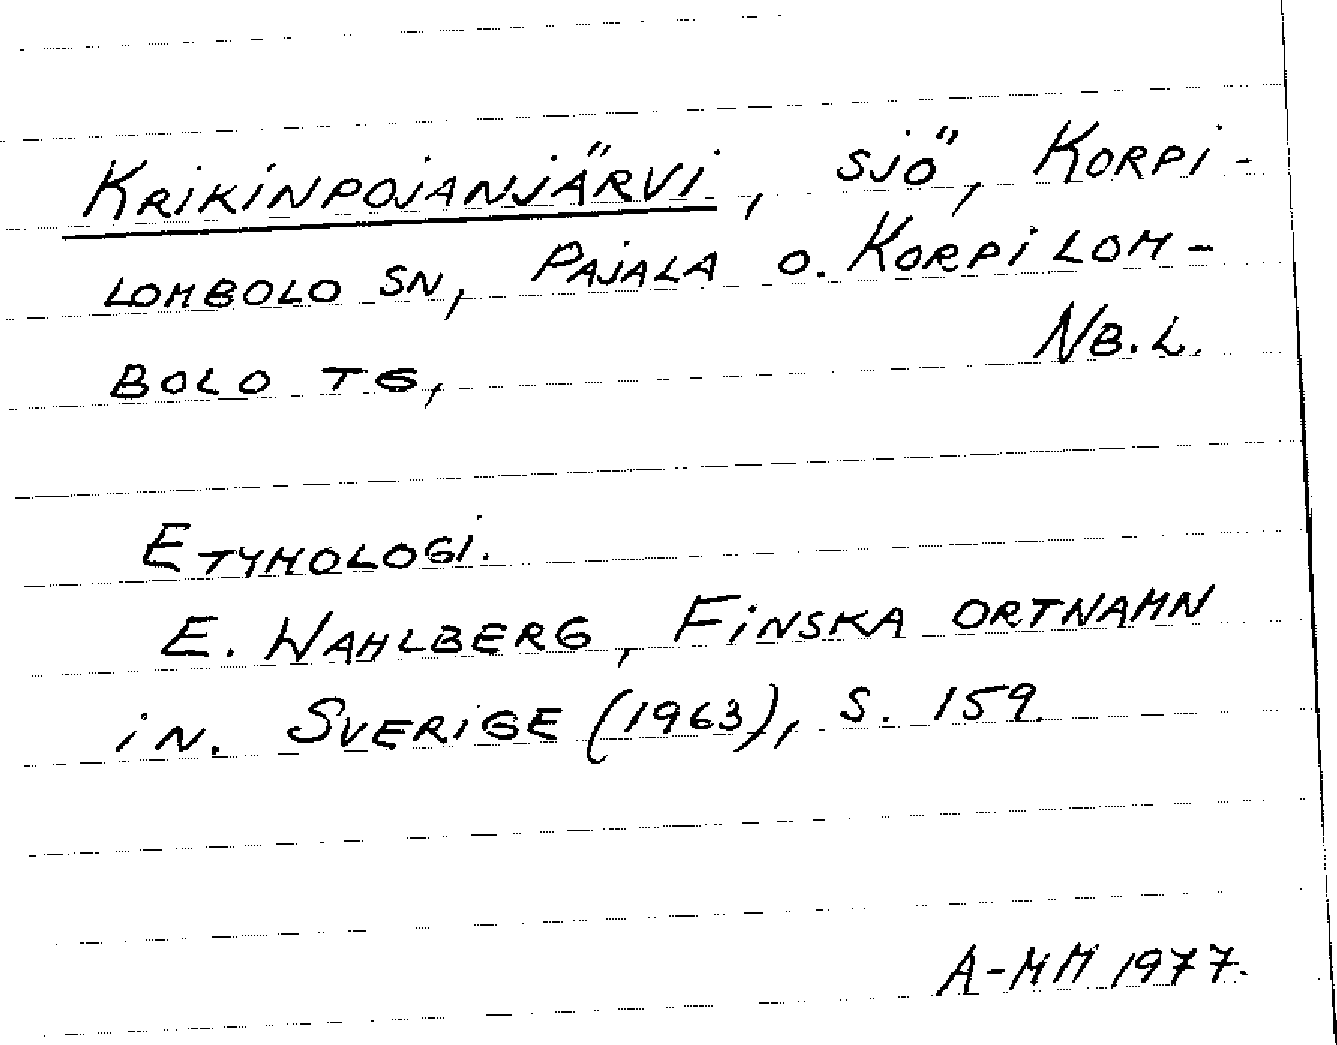 KRIKINPOJANJÄRVI, SJÖ, KORPI-
LOMBOLO SN, PAJALA O. KORPILOM-
BOLO TG, NB.L.
ETYMOLOGI.
E. WAHLBERG, FINSKA ORTNAMN
IN. SVERIGE (1963), S. 159.
A-MM 1977.